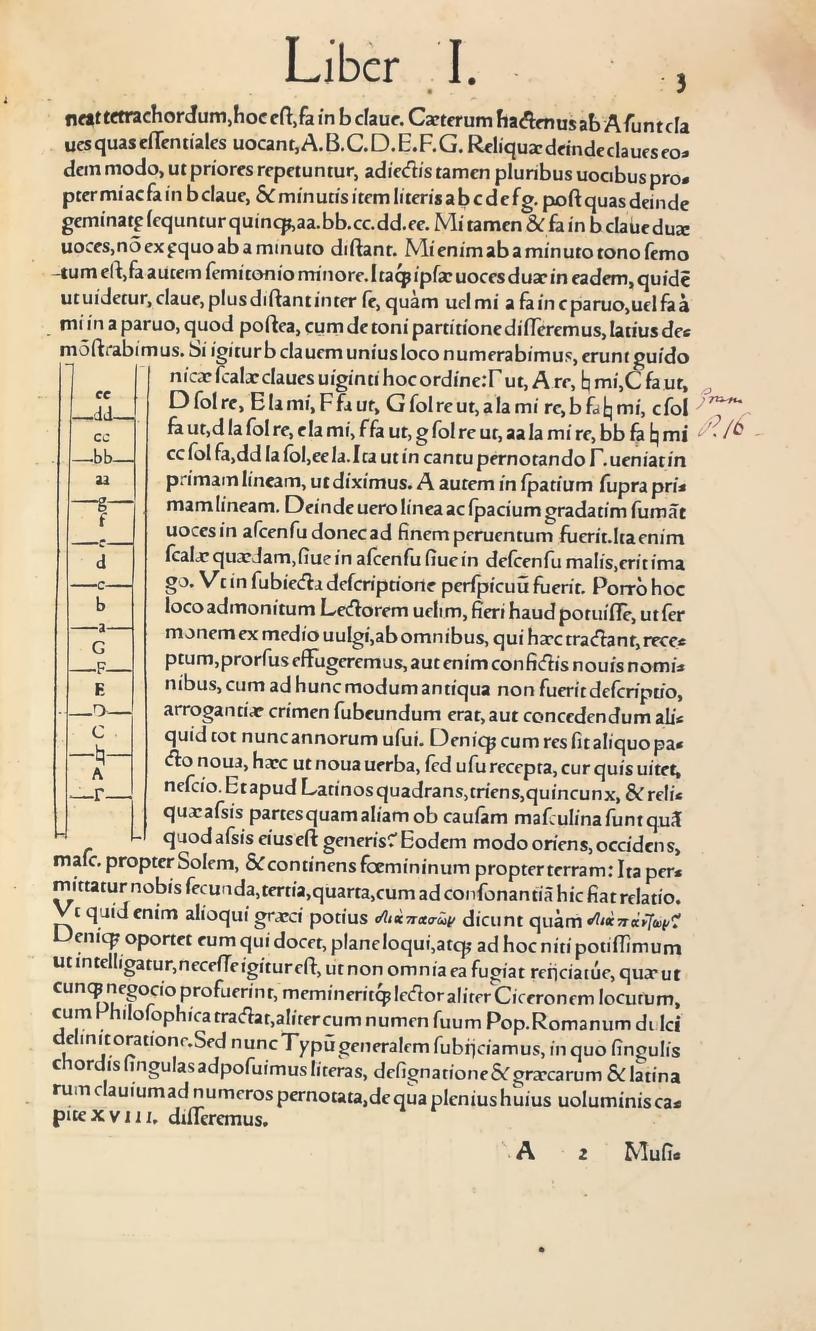 Liber I.
3
neat tetrachordum, hoc eſt, fa in b claue. Cæterum hactenus ab A ſunt cla
ues quas eſſentiales uocant, A.B.C.D.E.F.G. Reliquæ deinde claues eo⸗
dem modo, ut priores repetuntur, adiectis tamen pluribus uocibus pro⸗
pter mi ac fa in b claue, & minutis item literis a b c d e f g. poſt quas deinde
geminatę ſequuntur quinqꝫ, aa.bb.cc.dd.ee. Mi tamen & fa in b claue duæ
uoces, nō ex ęquo ab a minuto diſtant. Mi enim ab a minuto tono ſemo
tum eſt, fa autem ſemitonio minore. Itaqꝫ́ ipſæ uoces duæ in eadem, quidē
ut uidetur, claue, plus diſtant inter ſe, quàm uel mi a fa in c paruo, uel fa à
mi in a paruo, quod poſtea, cum de toni partitione diſſeremus, latius de⸗
mōſtrabimus. Si igitur b clauem unius loco numerabimus, erunt guido
nicæ ſcalæ claues uiginti hoc ordine: Γ ut, A re, ♮ mi, C fa ut,
D ſol re, E la mi, F fa ut, G ſol re ut, a la mi re, b fa ♮ mi, c ſol
fa ut, d la ſol re, e la mi, f fa ut, g ſol re ut, aa la mi re, bb fa ♮ mi
cc ſol fa, dd la ſol, ee la. Ita ut in cantu pernotando Γ. ueniat in
primam lineam, ut diximus. A autem in ſpatium ſupra pri⸗
mam lineam. Deinde uero linea ac ſpacium gradatim ſumāt
uoces in aſcenſu donec ad finem peruentum fuerit. Ita enim
ſcalæ quædam, ſiue in aſcenſu ſiue in deſcenſu malis, erit ima
go. Vt in ſubiecta deſcriptione perſpicuū fuerit. Porrò hoc
loco admonitum Lectorem uelim, fieri haud potuiſſe, ut ſer
monem ex medio uulgi, ab omnibus, qui hæc tractant, rece⸗
ptum, prorſus effugeremus, aut enim confictis nouis nomi⸗
nibus, cum ad hunc modum antiqua non fuerit deſcriptio,
arrogantiæ crimen ſubeundum erat, aut concedendum ali⸗
quid tot nunc annorum uſui. Deniqꝫ cum res ſit aliquo pa⸗
cto noua, hæc ut noua uerba, ſed uſu recepta, cur quis uitet,
neſcio. Et apud Latinos quadrans, triens, quincunx, & reli⸗
quæ aſsis partes quam aliam ob cauſam maſculina ſunt quā
quod aſsis eius eſt generis? Eodem modo oriens, occidens,
maſc. propter Solem, & continens fœmininum propter terram: Ita per⸗
mittatur nobis ſecunda, tertia, quarta, cum ad conſonantiā hic fiat relatio.
Vt quid enim alioqui græci potius διὰ πασῶν dicunt quàm διὰ πάντων?
Deniqꝫ oportet eum qui docet, plane loqui, atqꝫ ad hoc niti potiſſimum
ut intelligatur, neceſſe igitur eſt, ut non omnia ea fugiat reijciatúe, quæ ut
cunqꝫ negocio profuerint, memineritqꝫ́ lector aliter Ciceronem locutum,
cum Philoſophica tractat, aliter cum numen ſuum Pop. Romanum dulci
delinit oratione. Sed nunc Typū generalem ſubijciamus, in quo ſingulis
chordis ſingulas adpoſuimus literas, deſignatione & græcarum & latina
rum clauium ad numeros pernotata, de qua plenius huius uoluminis ca⸗
pite XVIII. diſſeremus.
A 2 Muſi⸗
ee
dd
cc
bb
aa
g
f
e
d
c
b
a
G
F
E
D
C
♮
A
Γ
P. 16